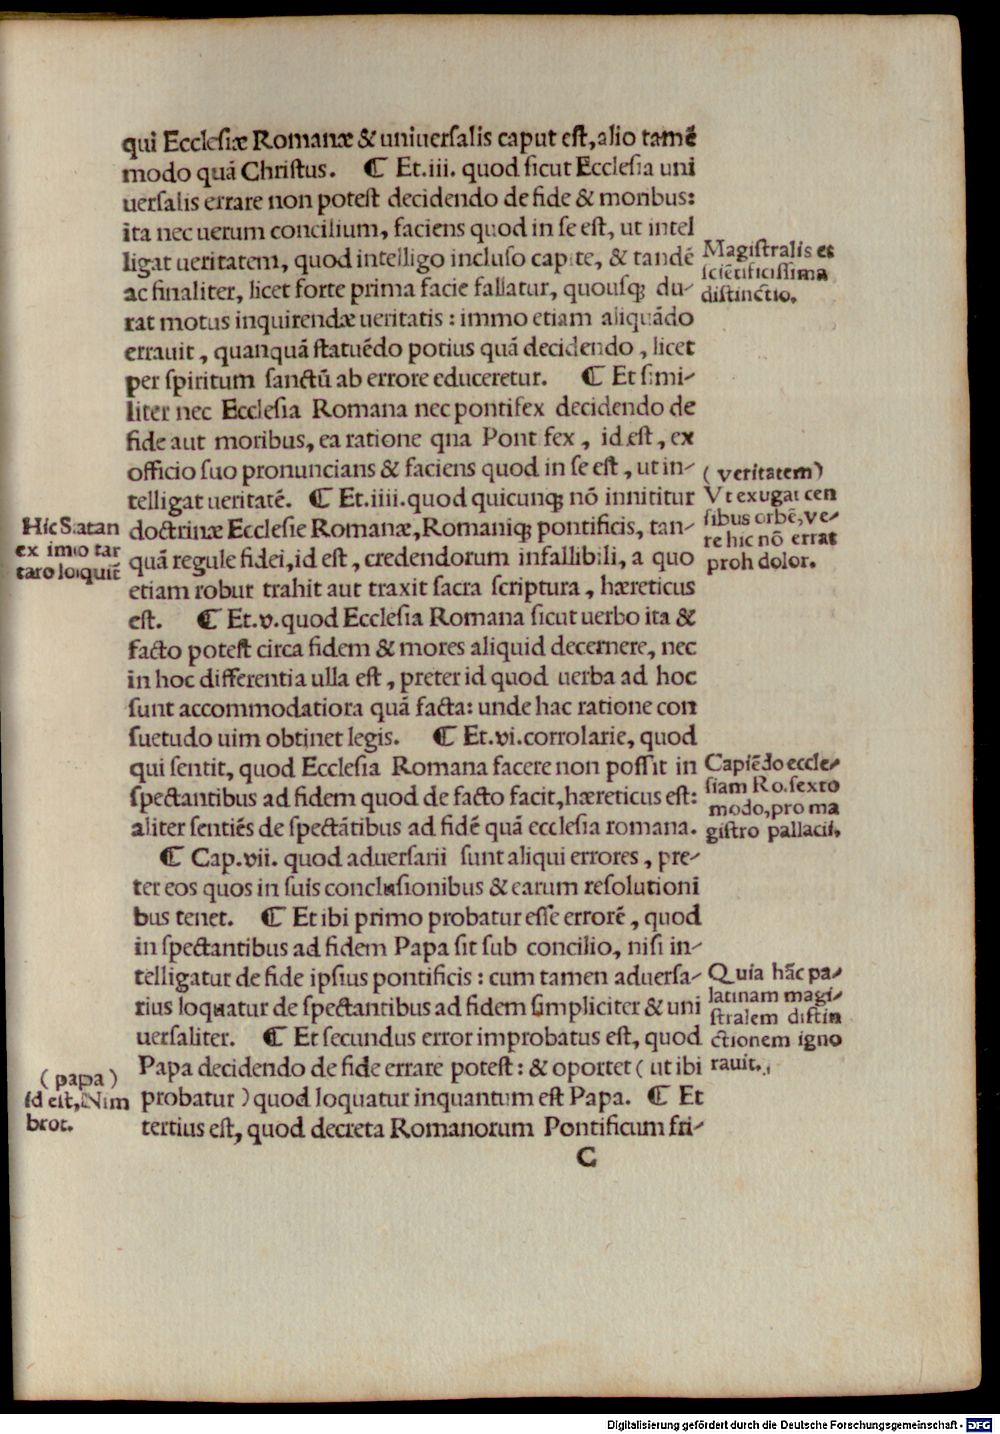 qui Ecclesiæ Romanæ & uniuersalis caput est, alio tamē
modo quā Christus. ¶ Et.iii. quod sicut Ecclesia uni
uersalis errare non potest decidendo de fide & moribus:
ita nec uerum concilium, faciens quod in se est, ut intel
ligat ueritatem, quod intelligo incluso capite, & tandē
ac finaliter, licet forte prima facie fallatur, quousq; du-
rat motus inquirendæ ueritatis: immo etiam aliquādo
errauit, quanquā statuēdo potius quā decidendo, licet
per spiritum sanctū ab errore educeretur. ¶ Et simi-
liter nec Ecclesia Romana nec pontifex decidendo de
fide aut moribus, ea ratione qna Pont fex, id est, ex
officio suo pronuncians & faciens quod in se est, ut in-
telligat ueritatē. ¶ Et.iiii.quod quicunq; nō innititur
doctrinæ Ecclesie Romanæ, Romaniq; pontificis, tan-
quā regule fidei, id est, credendorum infallibili, a quo
etiam robur trahit aut traxit sacra scriptura, hæreticus
est. ¶ Et.v.quod Ecclesia Romana sicut uerbo ita &
facto potest circa fidem & mores aliquid decernere, nec
in hoc differentia ulla est, preter id quod uerba ad hoc
sunt accommodatiora quā facta: unde hac ratione con
suetudo uim obtinet legis. ¶ Et.vi.corrolarie, quod
qui sentit, quod Ecclesia Romana facere non possit in
spectantibus ad fidem quod de facto facit, hæreticus est:
aliter sentiēs de spectātibus ad fidē quā ecclesia romana.
¶ Cap.vii. quod aduersarii sunt aliqui errores, pre-
ter eos quos in suis conclusionibus & earum resolutioni
bus tenet. ¶ Et ibi primo probatur esse errorē, quod
in spectantibus ad fidem Papa sit sub concilio, nisi in-
telligatur de fide ipsius pontificis: cum tamen aduersa-
rius loquatur de spectantibus ad fidem simpliciter & uni
uersaliter. ¶ Et secundus error improbatus est, quod
Papa decidendo de fide errare potest: & oportet (ut ibi
probatur) quod loquatur inquantum est Papa. ¶ Et
tertius est, quod decreta Romanorum Pontificum fri-
C
Magistralis et
sciētificissima
distinctio.
(veritatem)
Vt exugat cen
sibus orbē, ve-
re hic nō errat
proh dolor.
Hic Satan
ex imo tar
taro loquit̄
Capiēdo eccle-
siam Ro. sexto
modo, pro ma
gistro pallacii,
Quia hāc pa-
latinam magi-
stralem distin
ctionem igno
rauit.
(papa)
id est, Nim
brot.
Digitalisierung gefördert durch die Deutsche Forschungsgemeinschaft - DFG